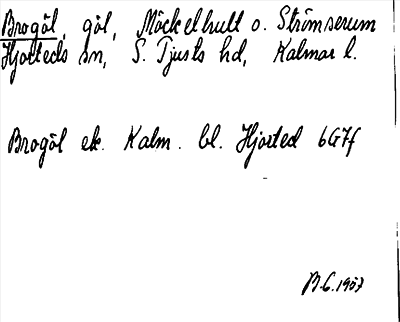 Brogöl, göl, Möckelhult o. Strömserum
Hjorteds sn, S. Tjusts hd, Kalmar l.
Brogöl ek. Kalm. bl. Hjorted 6G7f
B.C. 1957